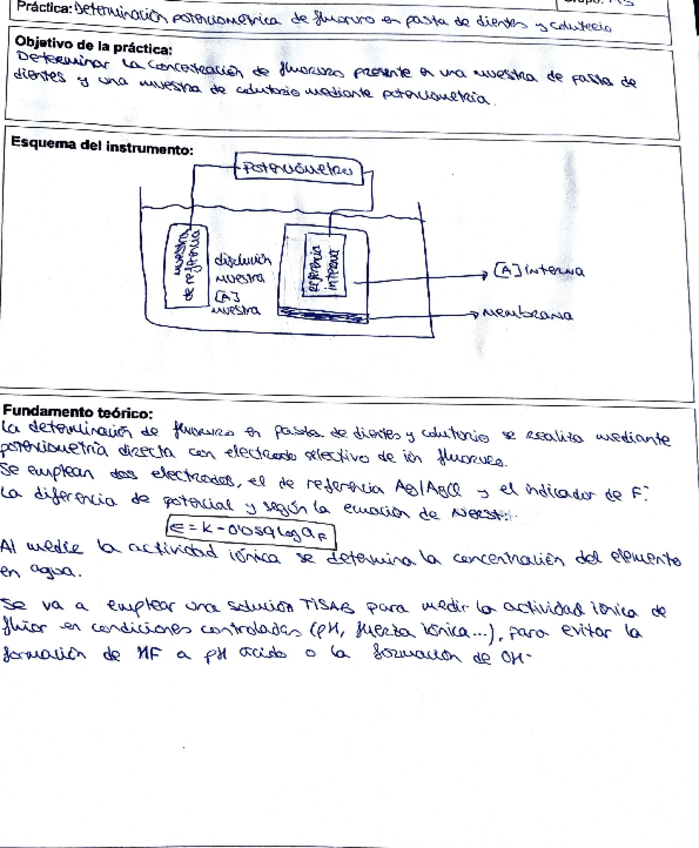 Práctica: Determinación potenciométrica de fluoruro en pasta de dientes y colutorio
Objetivo de la práctica:
Determinar la concentración de fluoruro presente en una muestra de pasta de
dientes y una muestra de colutorio mediante potenciometría.
Esquema del instrumento:
Potenciómetro
muestra
de referencia
disolución
muestra
[A]
muestra
referencia
interna
[A] interna
Membrana
Fundamento teórico:
La determinación de fluoruro en pasta de dientes y colutorio se realiza mediante
potenciometría directa con electrodo selectivo de ión fluoruro.
Se emplean dos electrodos, el de referencia Ag/AgCl y el indicador de F⁻.
La diferencia de potencial y según la ecuación de Nerst:
E = K - 0'059 log a_F
Al medir la actividad iónica se determina la concentración del elemento
en agua.
Se va a emplear una solución TISAB para medir la actividad iónica de
flúor en condiciones controladas (pH, fuerza iónica...), para evitar la
formación de HF a pH ácido o la formación de OH⁻